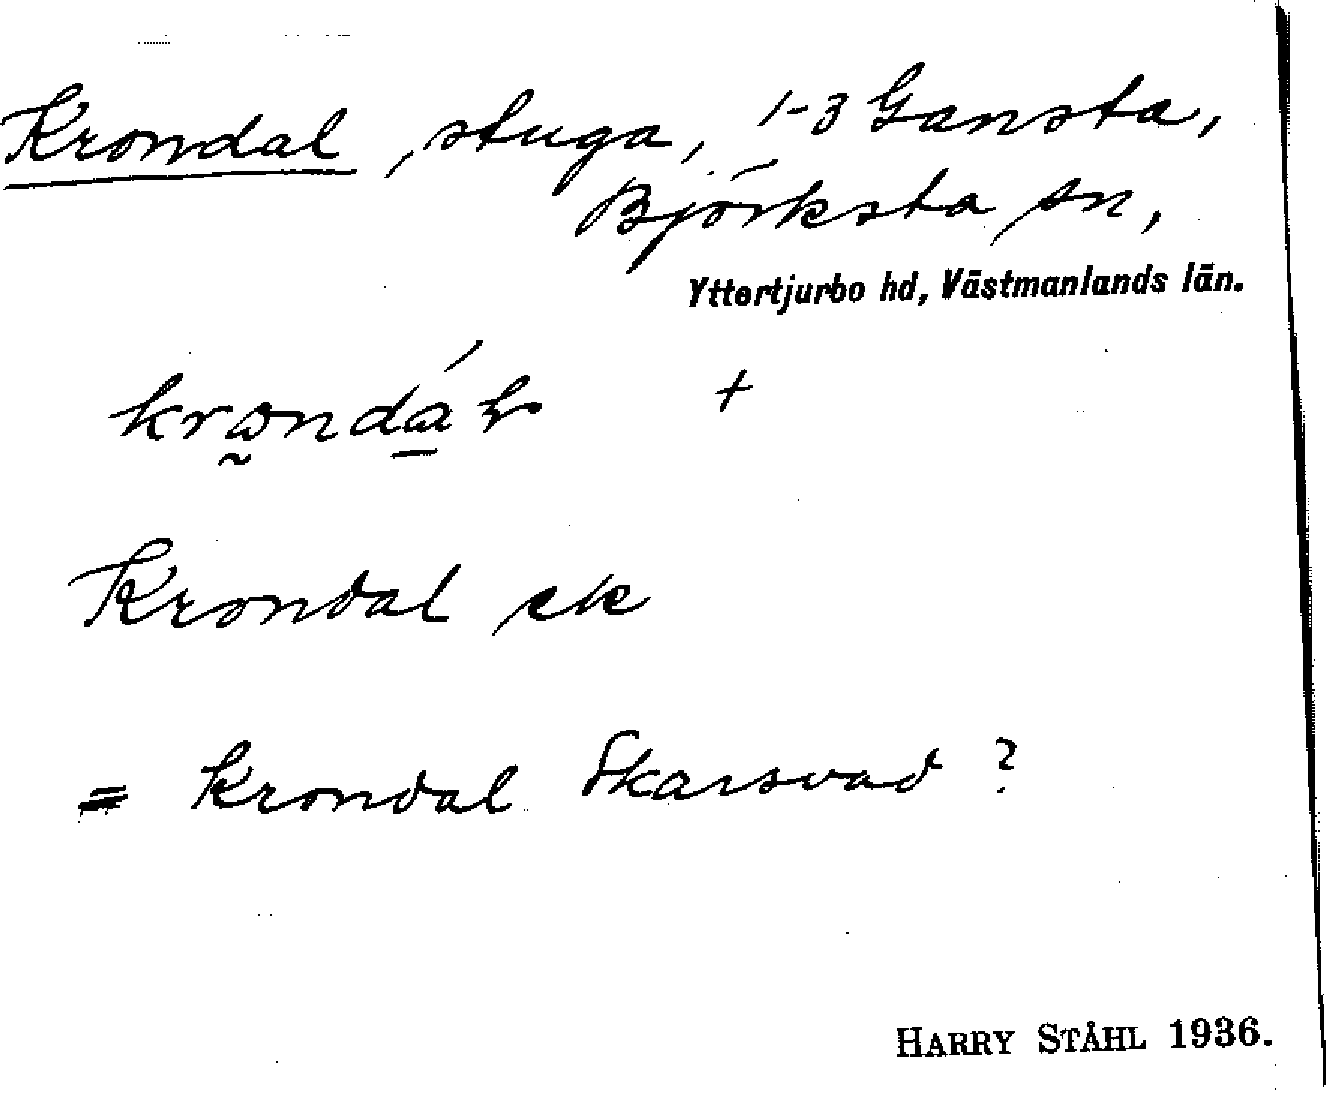 Krondal, stuga, 1-3 Gansta,
Björksta sn,
Yttertjurbo hd, Västmanlands län.
+
Krondal ek
= Krondal Skarsvad ?
HARRY STÅHL 1936.